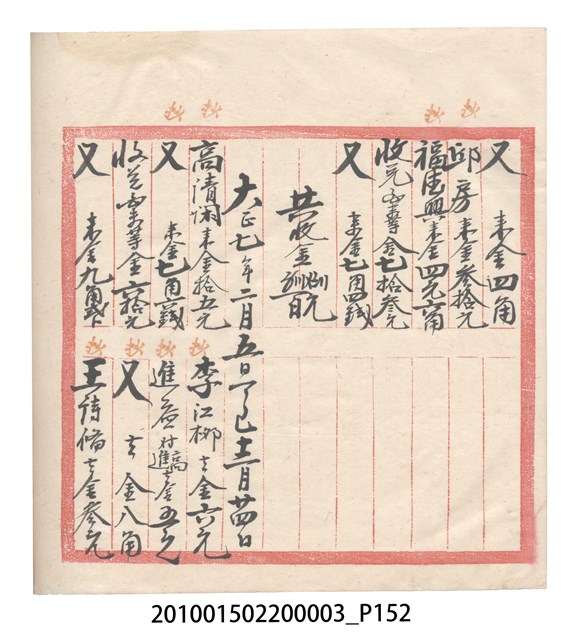 又 来金四角
邱房 来金參拾元
福德興 来金四元二角
收元 金七拾參元
又 来金七角四錢
共收金
大正七年二月五日丁巳十二月廿四日
高清湘 来金拾五元
又 来金七角錢
收 等金六拾元
又 来金九角
李江柳 去金六元
進益 去金五元
又 去金八角
王待脩 去金參元
201001502200003_P152